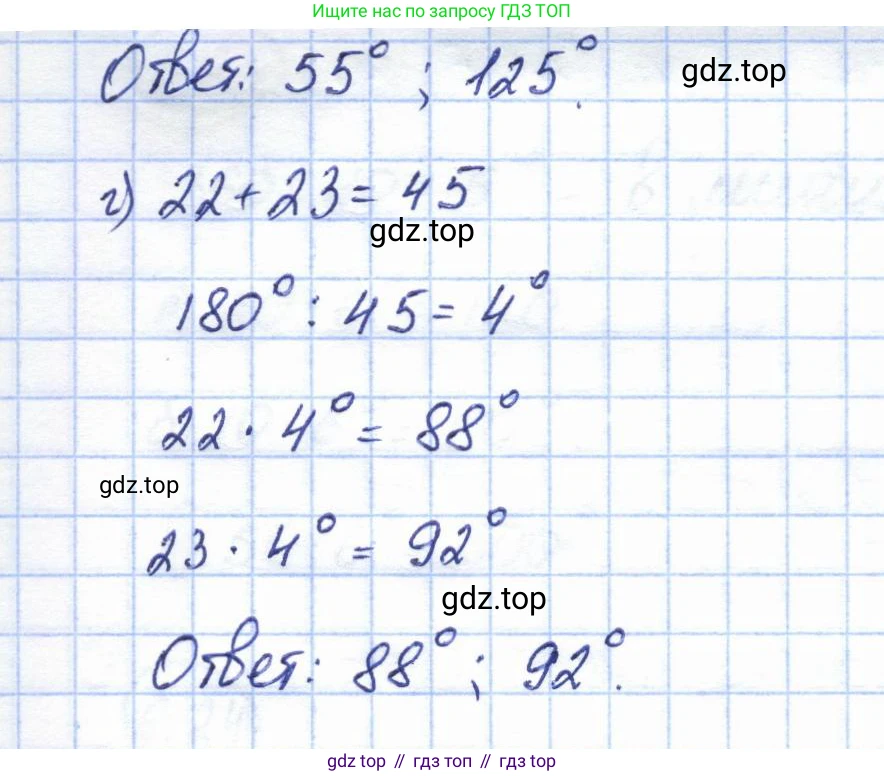 Ищите нас по запросу ГДЗ ТОП
Ответ: 55° ; 125°.
gdz.top
г) 22 + 23 = 45
gdz.top
180° : 45 = 4°
22 · 4° = 88°
gdz.top
23 · 4° = 92°
gdz.top
Ответ: 88° ; 92°.
gdz top // гдз топ // гдз top